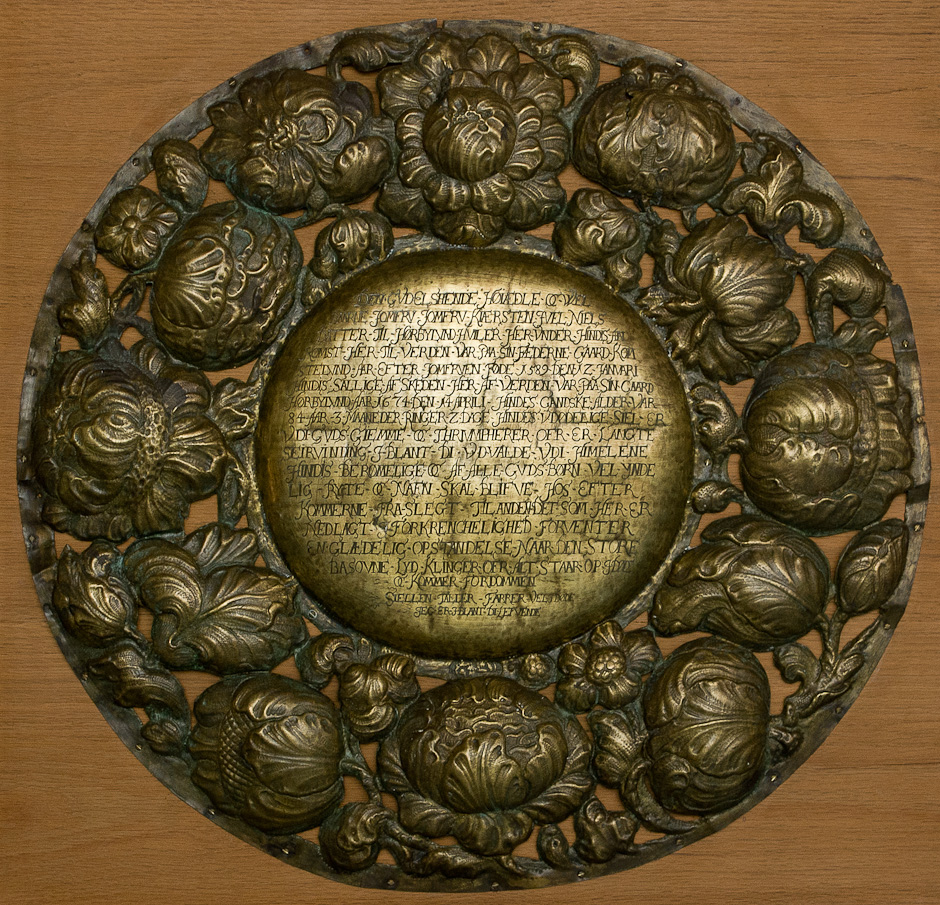 DEN GVDELSKENDE HØVEDLE OC VEL
BAARNE JOMFRV JOMFRV KIERSTEN IVEL NIELS
DAATTER TIL HØRBYLVND HVILER HER VNDER HINDIS
KOMST HER TIL VERDEN VAR PAA SIN FÆDERNE GAARD
LVND AAR EFTER JOMFRVEN FØDE 1589 DEN 12 JANVARI
HINDIS SALLIGE AFSKEDEN HER AF VERDEN VAR PAA SIN GAARD
HØRBYLVND AAR 1674 DEN 14 APRILI HINDES GANDSKE ALDER VAR
84 AAR 3 MAANEDER RINGER 2 DAGE HINDES VDØDELIGE SIEL ER
VDI GVDS GIEMME OC THRIVMPHERER OFR ER LANGTE
SEIRVINDING IBLANT DI VDVALDE VDI HIMELENE
HINDIS BERØMELIGE OC AF ALLE GVDS BØRN VEL YNDE
LIG RYCTE OC NAFN SKAL BLIFVE HOS EFTER
KOMMERNE FRA SLEGT TIL ANDEN DET SOM HER ER
NEDLAGT I FORKRENCHELIGHED FORVENTER
EN GLÆDELIG OPSTANDELSE NAAR DEN STORE
BASOVNE LYD KLINGER OFR ALT STAAR OP I DØDE
OC KOMMER FOR DOMMEN
SIELLEN TALER
JEG ER IBLANT DI LEFVENDE